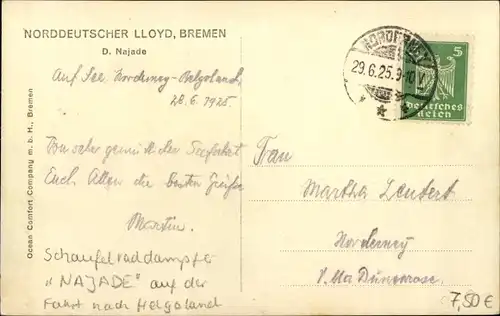 NORDDEUTSCHER LLOYD, BREMEN
D. Najade
Auf See, Norderney-Helgoland
28. 6. 1925
Von sehr gemütlicher Seefahrt
Euch Allen die besten Grüße
Martin.
Schaufelraddampfer
"NAJADE" auf der
Fahrt nach Helgoland
Ocean Comfort Company m. b. H., Bremen
NORDERNEY
29.6.25.9-10V.
5
Deutsches
Reich
Frau
Martha
Norderney
V.lla Dünenrose.
7,50 €